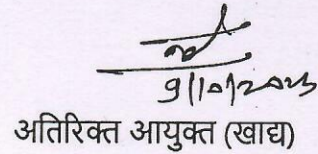 9/10/2023
अतिरिक्त आयुक्त (खाद्य)